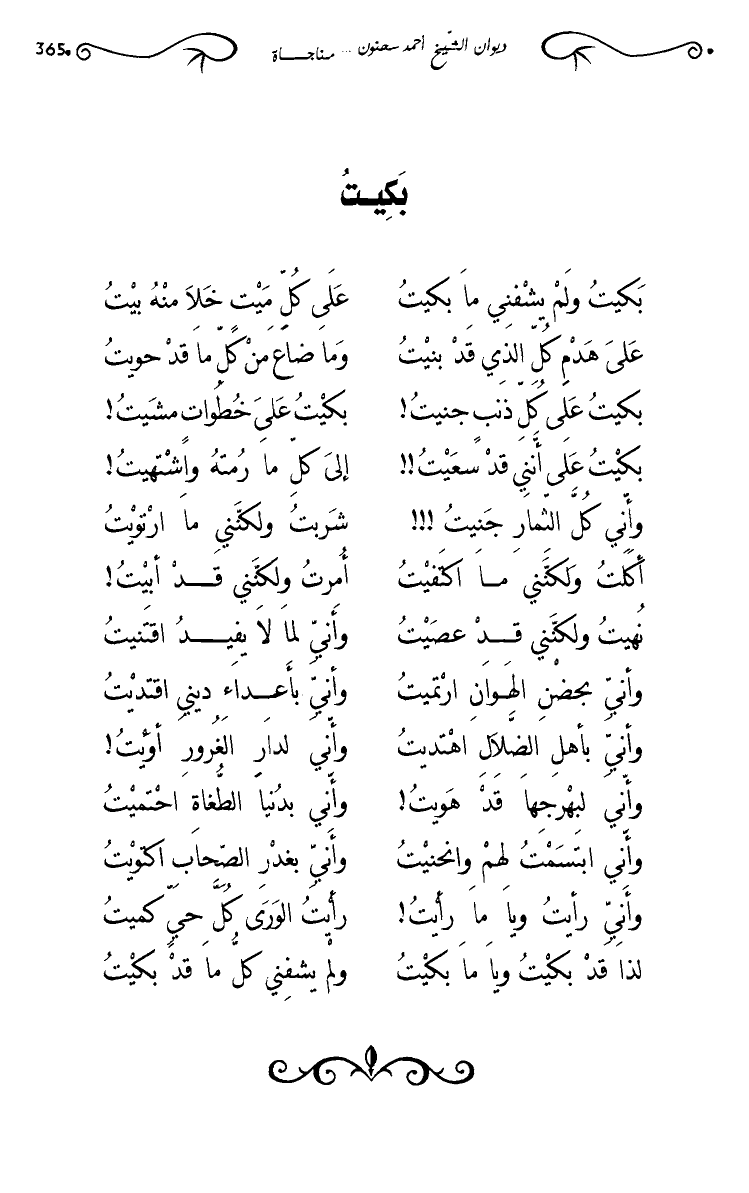 ديوان الشّيخ أحمد سحنون ... مناجـــاة 365
بَكِيــتُ
بَكيتُ ولَمْ يشْفني ما بكيتُ عَلَى كُلِّ مَيْتٍ خَلاَ منْهُ بيْتُ
عَلىَ هَدْمِ كُلِّ الَّذي قَدْ بنيْتُ وَما ضاعَ منْ كُلِّ ما قدْ حويتُ
بكيتُ عَلَى كُلِّ ذنبٍ جنيتُ! بكيْتُ عَلىَ خُطُواتٍ مشَيتُ!
بكيْتُ عَلَى أنَّني قدْ سعَيْتُ!! إلىَ كلِّ ما رُمتهُ واشْتهيتُ!
وأنّي كُلَّ الثّمارِ جَنيتُ !!! شرَبتُ ولكنَّني ما ارْتوَيْتُ
أكَلتُ وَلكنَّني مــا اكتفَيْتُ أُمرتُ ولكنَّني قـــدْ أبَيْتُ!
نُهيتُ ولكنَّني قـــدْ عصَيْتُ وأنيّ لماَ لاَ يفيـــدُ اقتَنيتُ
وأنيّ بحضْنِ الهَـوانِ ارْتميتُ وأنيّ بأَعـــداءِ ديني اقتديْتُ
وأنيّ بأهلِ الضَّلاَلِ اهْتديتُ وأنّي لدارِ الغُرورِ أويْتُ!
وأنّي لبهْرجها قَدْ هَويتُ! وأنّي بدُنياَ الطُّغاةِ احْتمَيْتُ
وأنّي ابتَسَمْتُ لهمْ وانحنيْتُ وأنيّ بغدْرِ الصّحابِ اكتوَيْتُ
وأنيّ رأيتُ وياَ ما رأيتُ! رأيتُ الوَرَى كُلَّ حيٍّ كميتُ
لذا قدْ بكيْتُ وياَ ما بكيْتُ ولمْ يشفِني كلُّ ما قدْ بكيْتُ